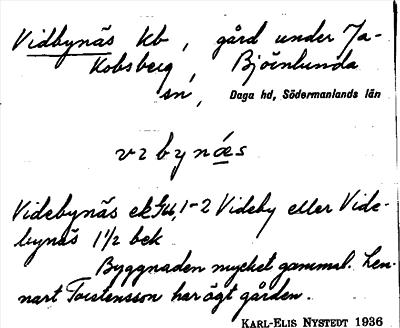 Vidbynäs kb, gård under Ja-
kobsberg, Björnlunda
sn, Daga hd, Södermanlands län
vɪbynǽs
Videbynäs ek Gu, 1-2 Videby eller Vide-
bynäs 1½ bek
Byggnaden mycket gammal. Len-
nart Torstensson har ägt gården.
KARL-ELIS NYSTEDT 1936